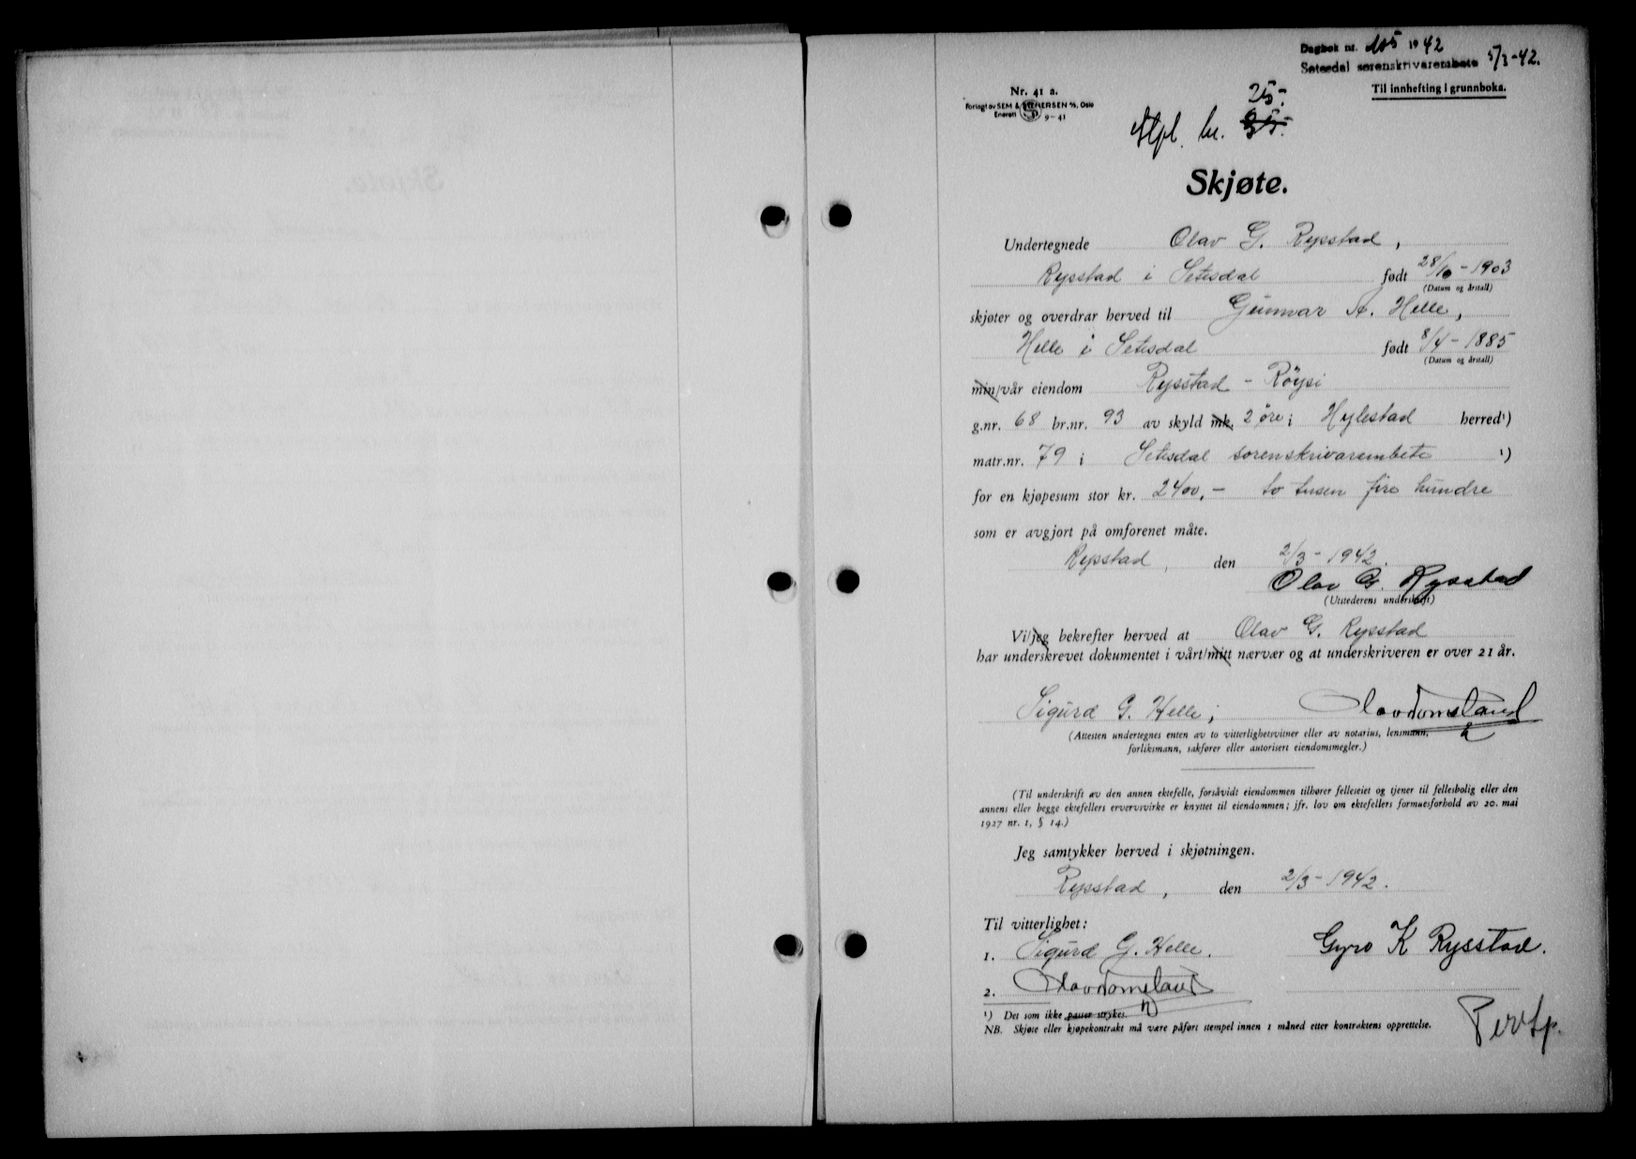 Dagbok nr. 105 1942
Setesdal sorenskrivarembete 5/3-42.
Til innhefting i grunnboka.
Nr. 41 a.
Forlagt av SEM & STENERSEN A/S, Oslo
Enerett 9-41
25.-
Stpl. kr. 35.-
Skjøte.
Undertegnede Olav G. Rysstad,
Rysstad i Setesdal født 28/10-1903
(Datum og årstall)
skjøter og overdrar herved til Gunnar A. Helle,
Helle i Setesdal født 8/4-1885
(Datum og årstall)
min/vår eiendom Rysstad - Röysi
g.nr. 68 br.nr. 93 av skyld mk. 2 øre i Hylestad herred¹)
matr.nr. 79 i Setesdal sorenskrivarembete ¹)
for en kjøpesum stor kr. 2400,- to tusen fire hundre
som er avgjort på omforenet måte.
Rysstad, den 2/3-1942.
Olav G. Rysstad
(Utstederens underskrift)
Vi/jeg bekrefter herved at Olav G. Rysstad
har underskrevet dokumentet i vårt/mitt nærvær og at underskriveren er over 21 år.
Sigurd G. Helle, Olav Tomsland
(Attesten undertegnes enten av to vitterlighetsvitner eller av notarius, lensmann,
forliksmann, sakfører eller autorisert eiendomsmegler.)
(Til underskrift av den annen ektefelle, forsåvidt eiendommen tilhører felleseiet og tjener til fellesbolig eller den
annens eller begge ektefellers ervervsvirke er knyttet til eiendommen; jfr. lov om ektefellers formuesforhold av 20. mai
1927 nr. 1, § 14.)
Jeg samtykker herved i skjøtningen.
Rysstad, den 2/3-1942.
Til vitterlighet:
1. Sigurd G. Helle. Gyro K Rysstad.
2. Olav Tomsland
¹) Det som ikke passer strykes.
NB. Skjøte eller kjøpekontrakt må være påført stempel innen 1 måned etter kontraktens opprettelse.